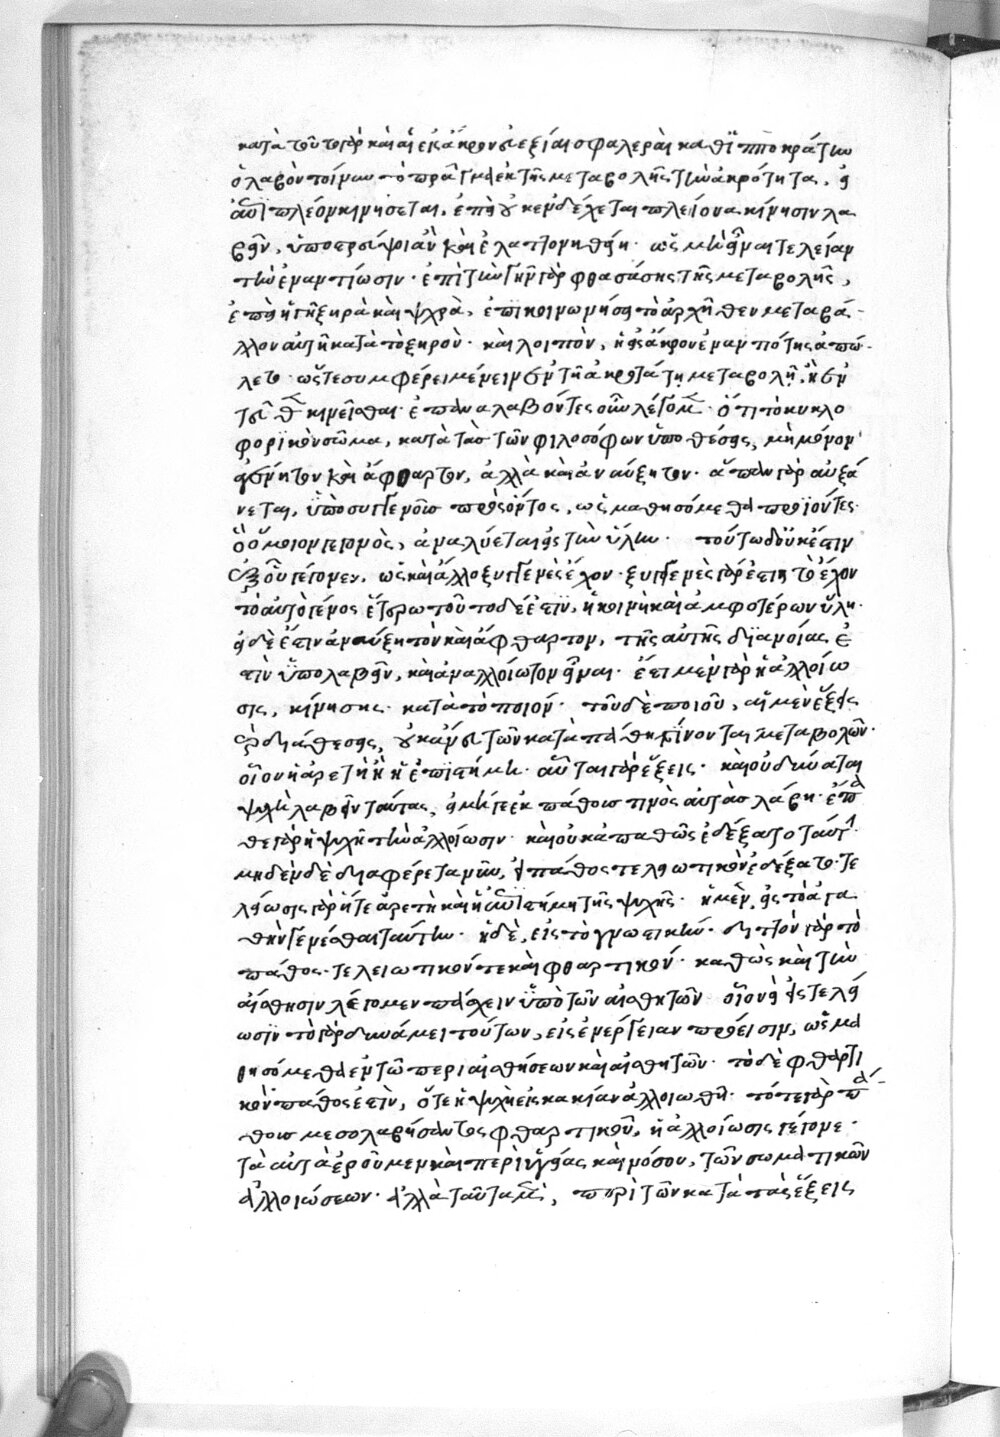 κατὰ τοῦτο γὰρ καὶ αἱ εἰς ἄκρον εὐεξίαι σφαλεραὶ καθ' ἱπποκράτην
ὃ λαβὸν τοίνυν τὸ πρᾶγμα ἐκ τῆς μεταβολῆς τὴν ἀκρότητα, εἰ
αὖθι πλέον κινήσεται, ἐπεὶ οὐκ ἐνδέχεται πλείονα κίνησιν λα
βεῖν, ὑποστρέψει ἂν καὶ ἐλαττονηθῆ· ὡς μὴ εἶναι τελείαν
τὴν ἐναντίωσιν· ἐπὶ τὴν γῆν γὰρ φθασάσης τῆς μεταβολῆς,
ἐπεὶ ἡ γῆ ξηρὰ καὶ ψυχρὰ, ἐπικοινωνήσει τὸ ἀρχῆθεν μεταβά-
λλον αὐτῆ κατὰ τὸ ξηρόν· καὶ λοιπὸν, ἡ εἰς ἄκρον ἐναντιότης ἀπώ-
λετο· ὥστε συμφέρει μένειν ἐν τῆ ἀκροτάτη μεταβολῆ, ἢ ἐν
κινεῖσθαι· ἐπαναλαβόντες οὖν λέγομεν· ὅτι τὸ κυκλο
φορικὸν σῶμα, κατὰ τὰς τῶν φιλοσόφων ὑποθέσεις, μὴ μόνον
ἀγένητον καὶ ἄφθαρτον, ἀλλὰ καὶ ἀναύξητον· ἅπαν γὰρ αὐξά
νεται, ὑπὸ συγγενοῦς προσιόντος, ὡς μαθησόμεθα προϊόντες·
ὃ ὅμοιον γεγονὸς, ἀναλύεται εἰς τὴν ὕλην· τούτω δ' οὐκ ἔστιν
ἐξ οὗ γέγονεν, ὡς καὶ ἄλλο ξυγγενὲς ἔχον· ξυγγενὲς γάρ ἐστι τὸ ἔχον
τὸ αὐτὸ γένος ἑτέρω τοῦτο δέ ἐστιν, ἡ κοινὴ καὶ ἀμφοτέρων ὕλη·
εἰ δὲ ἔστιν ἀναύξητον καὶ ἄφθαρτον, τῆς αὐτῆς διανοίας ἐ
στὶν ὑπολαβεῖν, καὶ ἀναλλοίωτον εἶναι· ἔστι μὲν γὰρ ἡ ἀλλοίω
σις, κίνησις κατὰ τὸ ποιόν· τοῦ δὲ ποιοῦ, αἱ μὲν ἕξεις
καὶ διαθέσεις, οὐκ ἄνευ τῶν κατὰ πάθη γίνονται μεταβολῶν·
οἷον ἡ ἀρετὴ ἢ ἡ ἐπιστήμη· αὗται γὰρ ἕξεις· καὶ οὐ δύναται
ψυχὴ λαβεῖν ταύτας, εἰ μή γε ἐκ πάθους τινὸς αὐτὰς λάβη·
θε γὰρ ἡ ψυχὴ τὴν ἀλλοίωσιν· καὶ οὐκ ἀπαθῶς ἐδέξατο ταύτην·
μηδὲν δὲ διαφέρεται νῦν, εἰ πάθος τελειωτικὸν ἐδέξατο· τε
λείωσις γὰρ ἥ τε ἀρετὴ καὶ ἡ ἐπιστήμη τῆς ψυχῆς· ἡ μὲν, εἰς τὸ ἀγα
θὴν γενέσθαι ταύτην· ἡ δὲ, εἰς τὸ γνωστικήν· διττὸν γὰρ τὸ
πάθος· τελειωτικόν τε καὶ φθαρτικόν· καθὼς καὶ τὴν
αἴσθησιν λέγομεν πάσχειν ὑπὸ τῶν αἰσθητῶν οἱονεὶ εἰς τελεί
ωσιν τὸ γὰρ δυνάμει τούτων, εἰς ἐνέργειαν προΐεισιν, ὡς μα
θησόμεθα ἐν τῶ περὶ αἰσθήσεων καὶ αἰσθητῶν· τὸ δὲ φθαρτι
κὸν πάθος ἐστὶν, ὅτε ἡ ψυχὴ εἰς κακίαν ἀλλοιωθῆ· τότε γὰρ πά-
θους μεσολαβήσαντος φθαρτικοῦ, ἡ ἀλλοίωσις γέγονε·
τὰ αὐτὰ ἐροῦμεν καὶ περὶ ὑγείας καὶ νόσου, τῶν σωματικῶν
ἀλλοιώσεων· ἀλλὰ ταῦτα μὲν, περὶ τῶν κατὰ τὰς ἕξεις